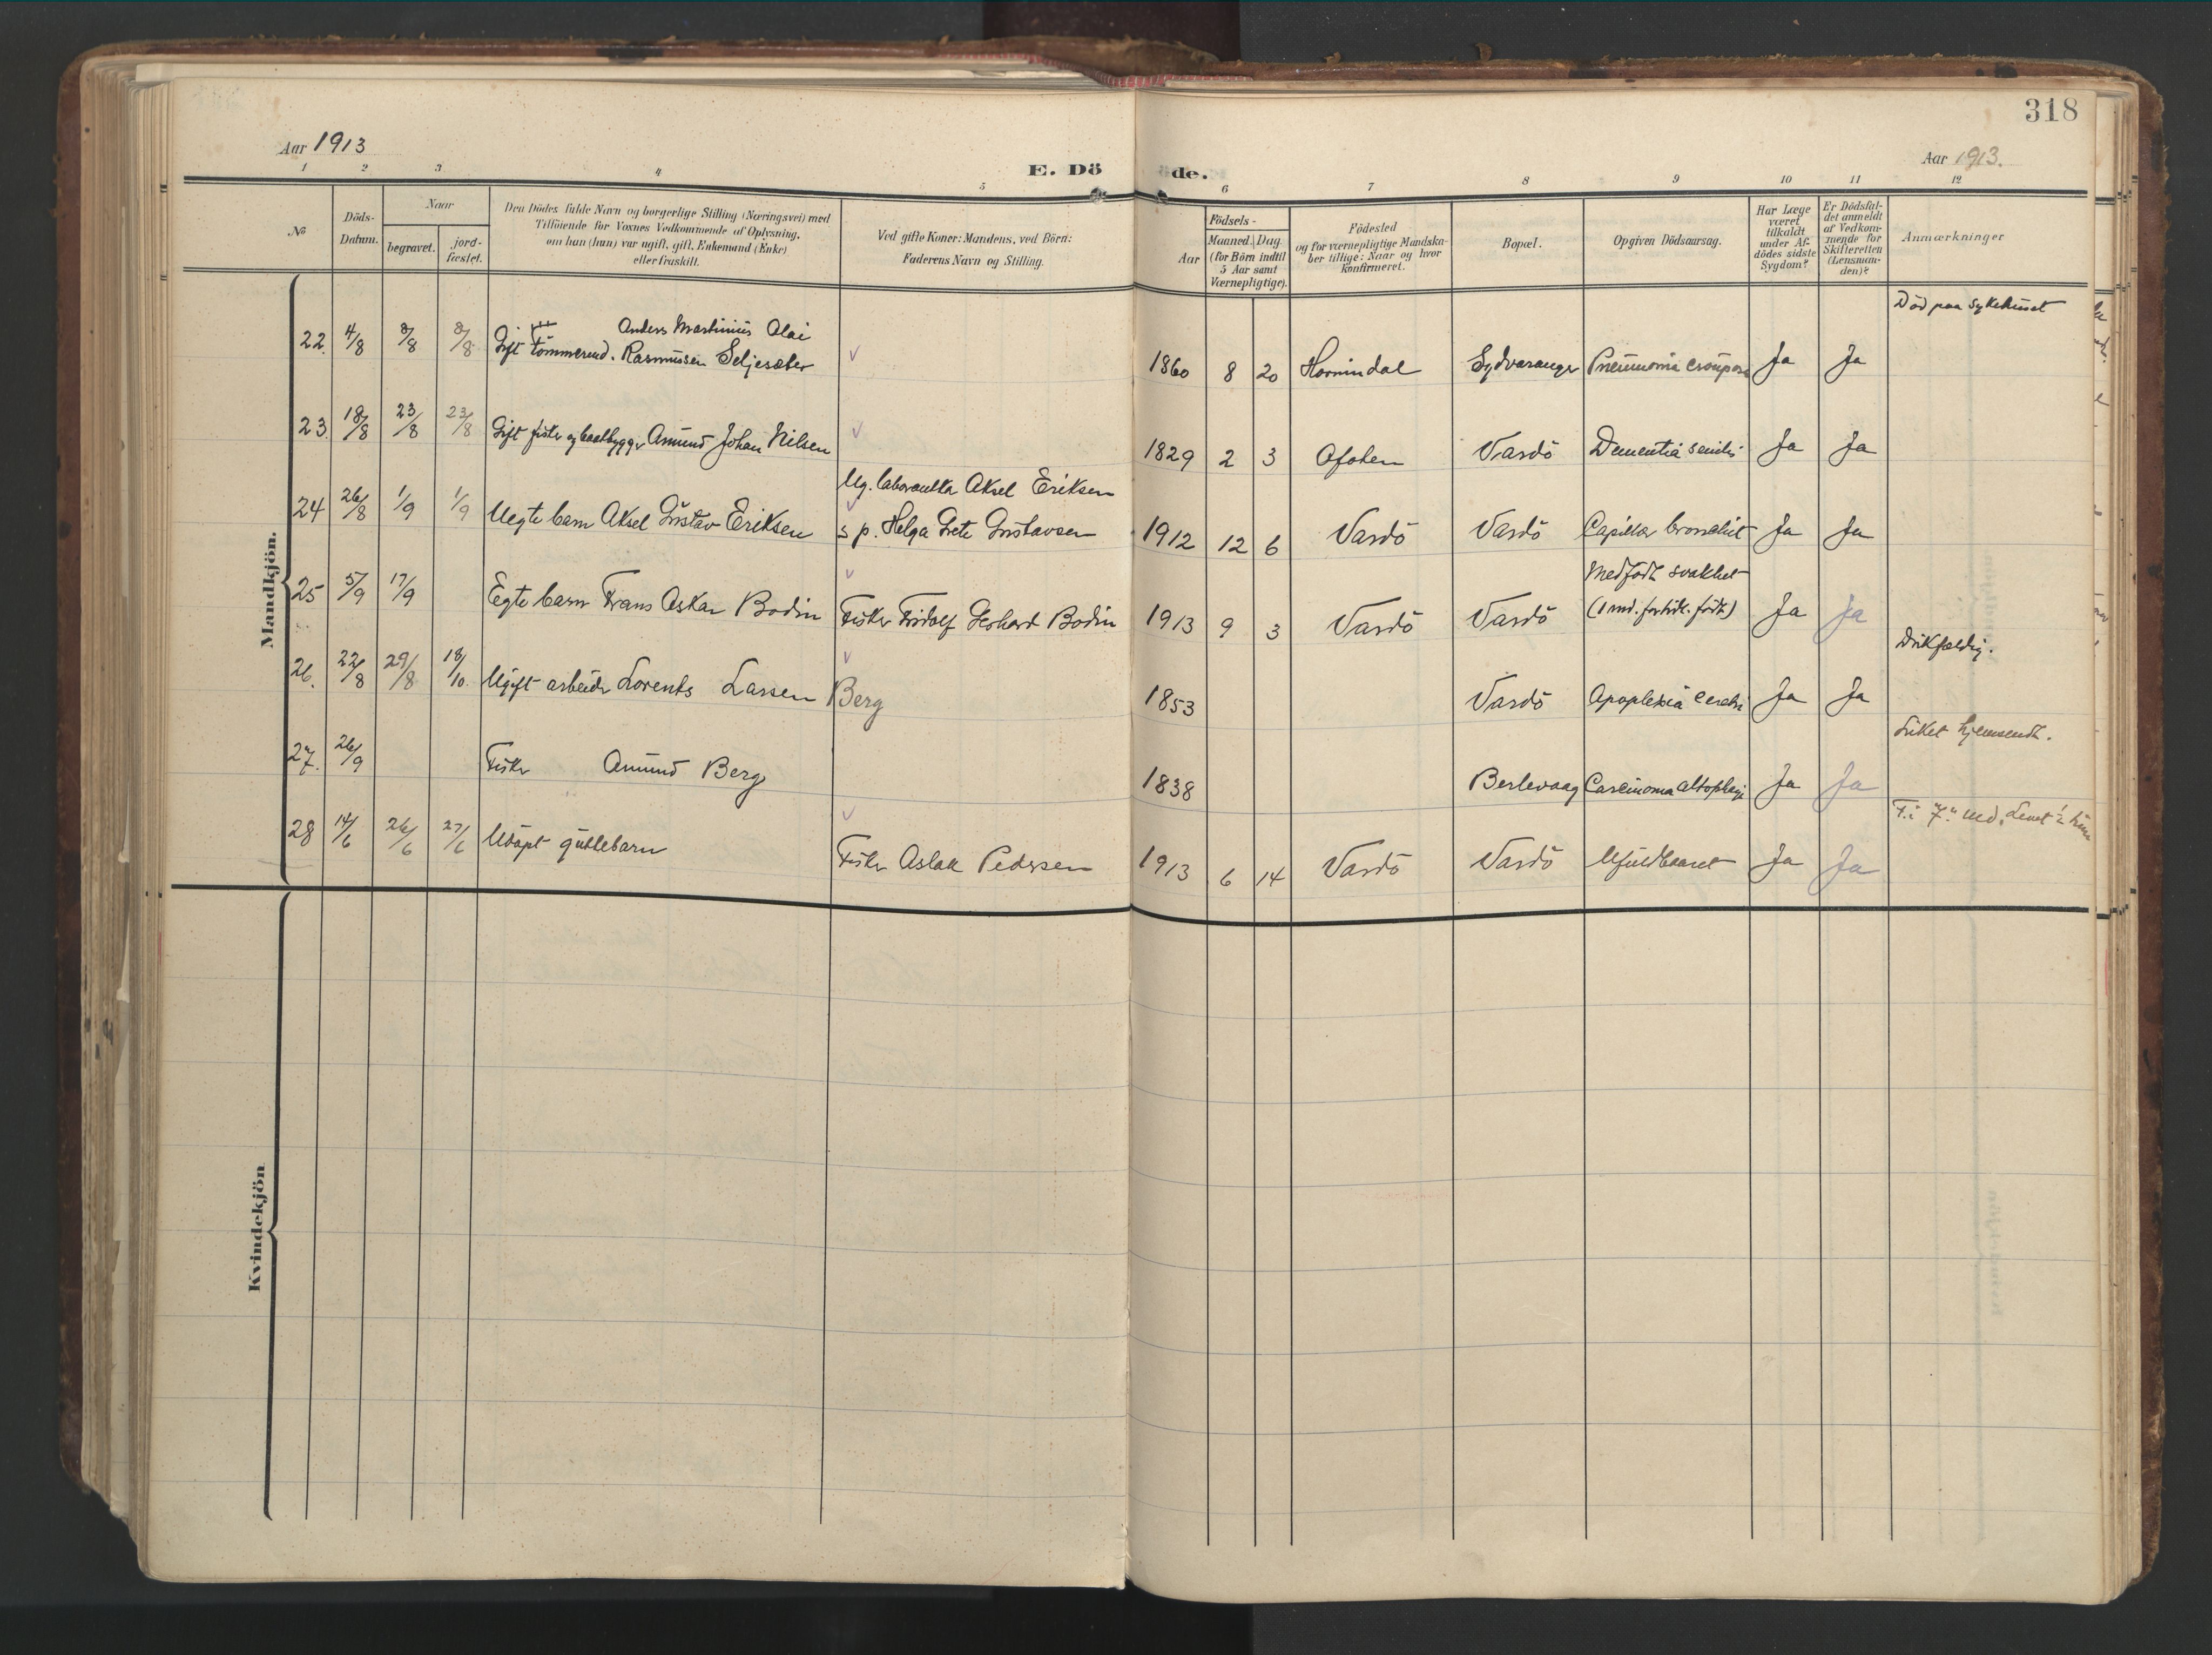 318
Aar 1913
Aar 1913.
E. Döde.
1 2 3 4 5 6 7 8 9 10 11 12
No
Döds-Datum.
Naar
begravet.
jord-fæstet.
Den Dödes fulde Navn og borgerlige Stilling (Næringsvei) med
Tilföiende for Voxnes Vedkommende af Oplysning,
om han (hun) var ugift, gift, Enkemand (Enke)
eller fraskilt.
Ved gifte Koner: Mandens, ved Börn:
Faderens Navn og Stilling.
Födsels-
Aar
Maaned. Dag
(for Börn indtil
5 Aar samt
Værnepligtige).
Födested
og for værnepligtige Mandska-
ber tillige: Naar og hvor
konfirmeret.
Bopæl.
Opgiven Dödsaarsag.
Har Læge
været
tilkaldt
under Af-
dödes sidste
Sygdom?
Er Dödsfal-
det anmeldt
af Vedkom-
mende for
Skifteretten
(Lensman-
den)?
Anmærkninger
Mandkjön.
Död paa sykehuset
Anders Martinius Olai
22. 4/8 8/8 8/8 Gift Tömmermd. Rasmussen Seljesæter 1860 8 20 Hornindal Sydvaranger Pneumonia crouposa Ja Ja
23. 18/8 23/8 23/8 Gift fisker og baatbygger Amund Johan Nilsen 1829 2 3 Ofoten Vardö Dementia senilis Ja Ja
Ug. Aksel Eriksen
24 26/8 1/9 1/9 Uegte barn Aksel Gustav Eriksen s p. Helga Grete Gustavsen 1912 12 6 Vardö Vardö Capillær bronchit Ja Ja
Medfödt svakhet
25 5/9 17/9 Egte barn Frans Oskar Bodin Fisker Fridolf Gerhard Bodin 1913 9 3 Vardö Vardö (1 md. fortidl. födt) Ja Ja
Drikfældig.
26. 22/8 29/8 18/10. Ugift arbeider Lorents Larsen Berg 1853 Vardö Apoplexia cerebri Ja Ja
Liket hjemsendt.
27. 26/9 Fisker Amund Berg 1838 Berlevaag Carcinoma Ja Ja
F. i 7. md. Levet ½ time
28 14/6 26/6 27/6 Udöpt guttebarn Fisker Aslak Pedersen 1913 6 14 Vardö Vardö Ufuldbaaret Ja Ja
Kvindekjön